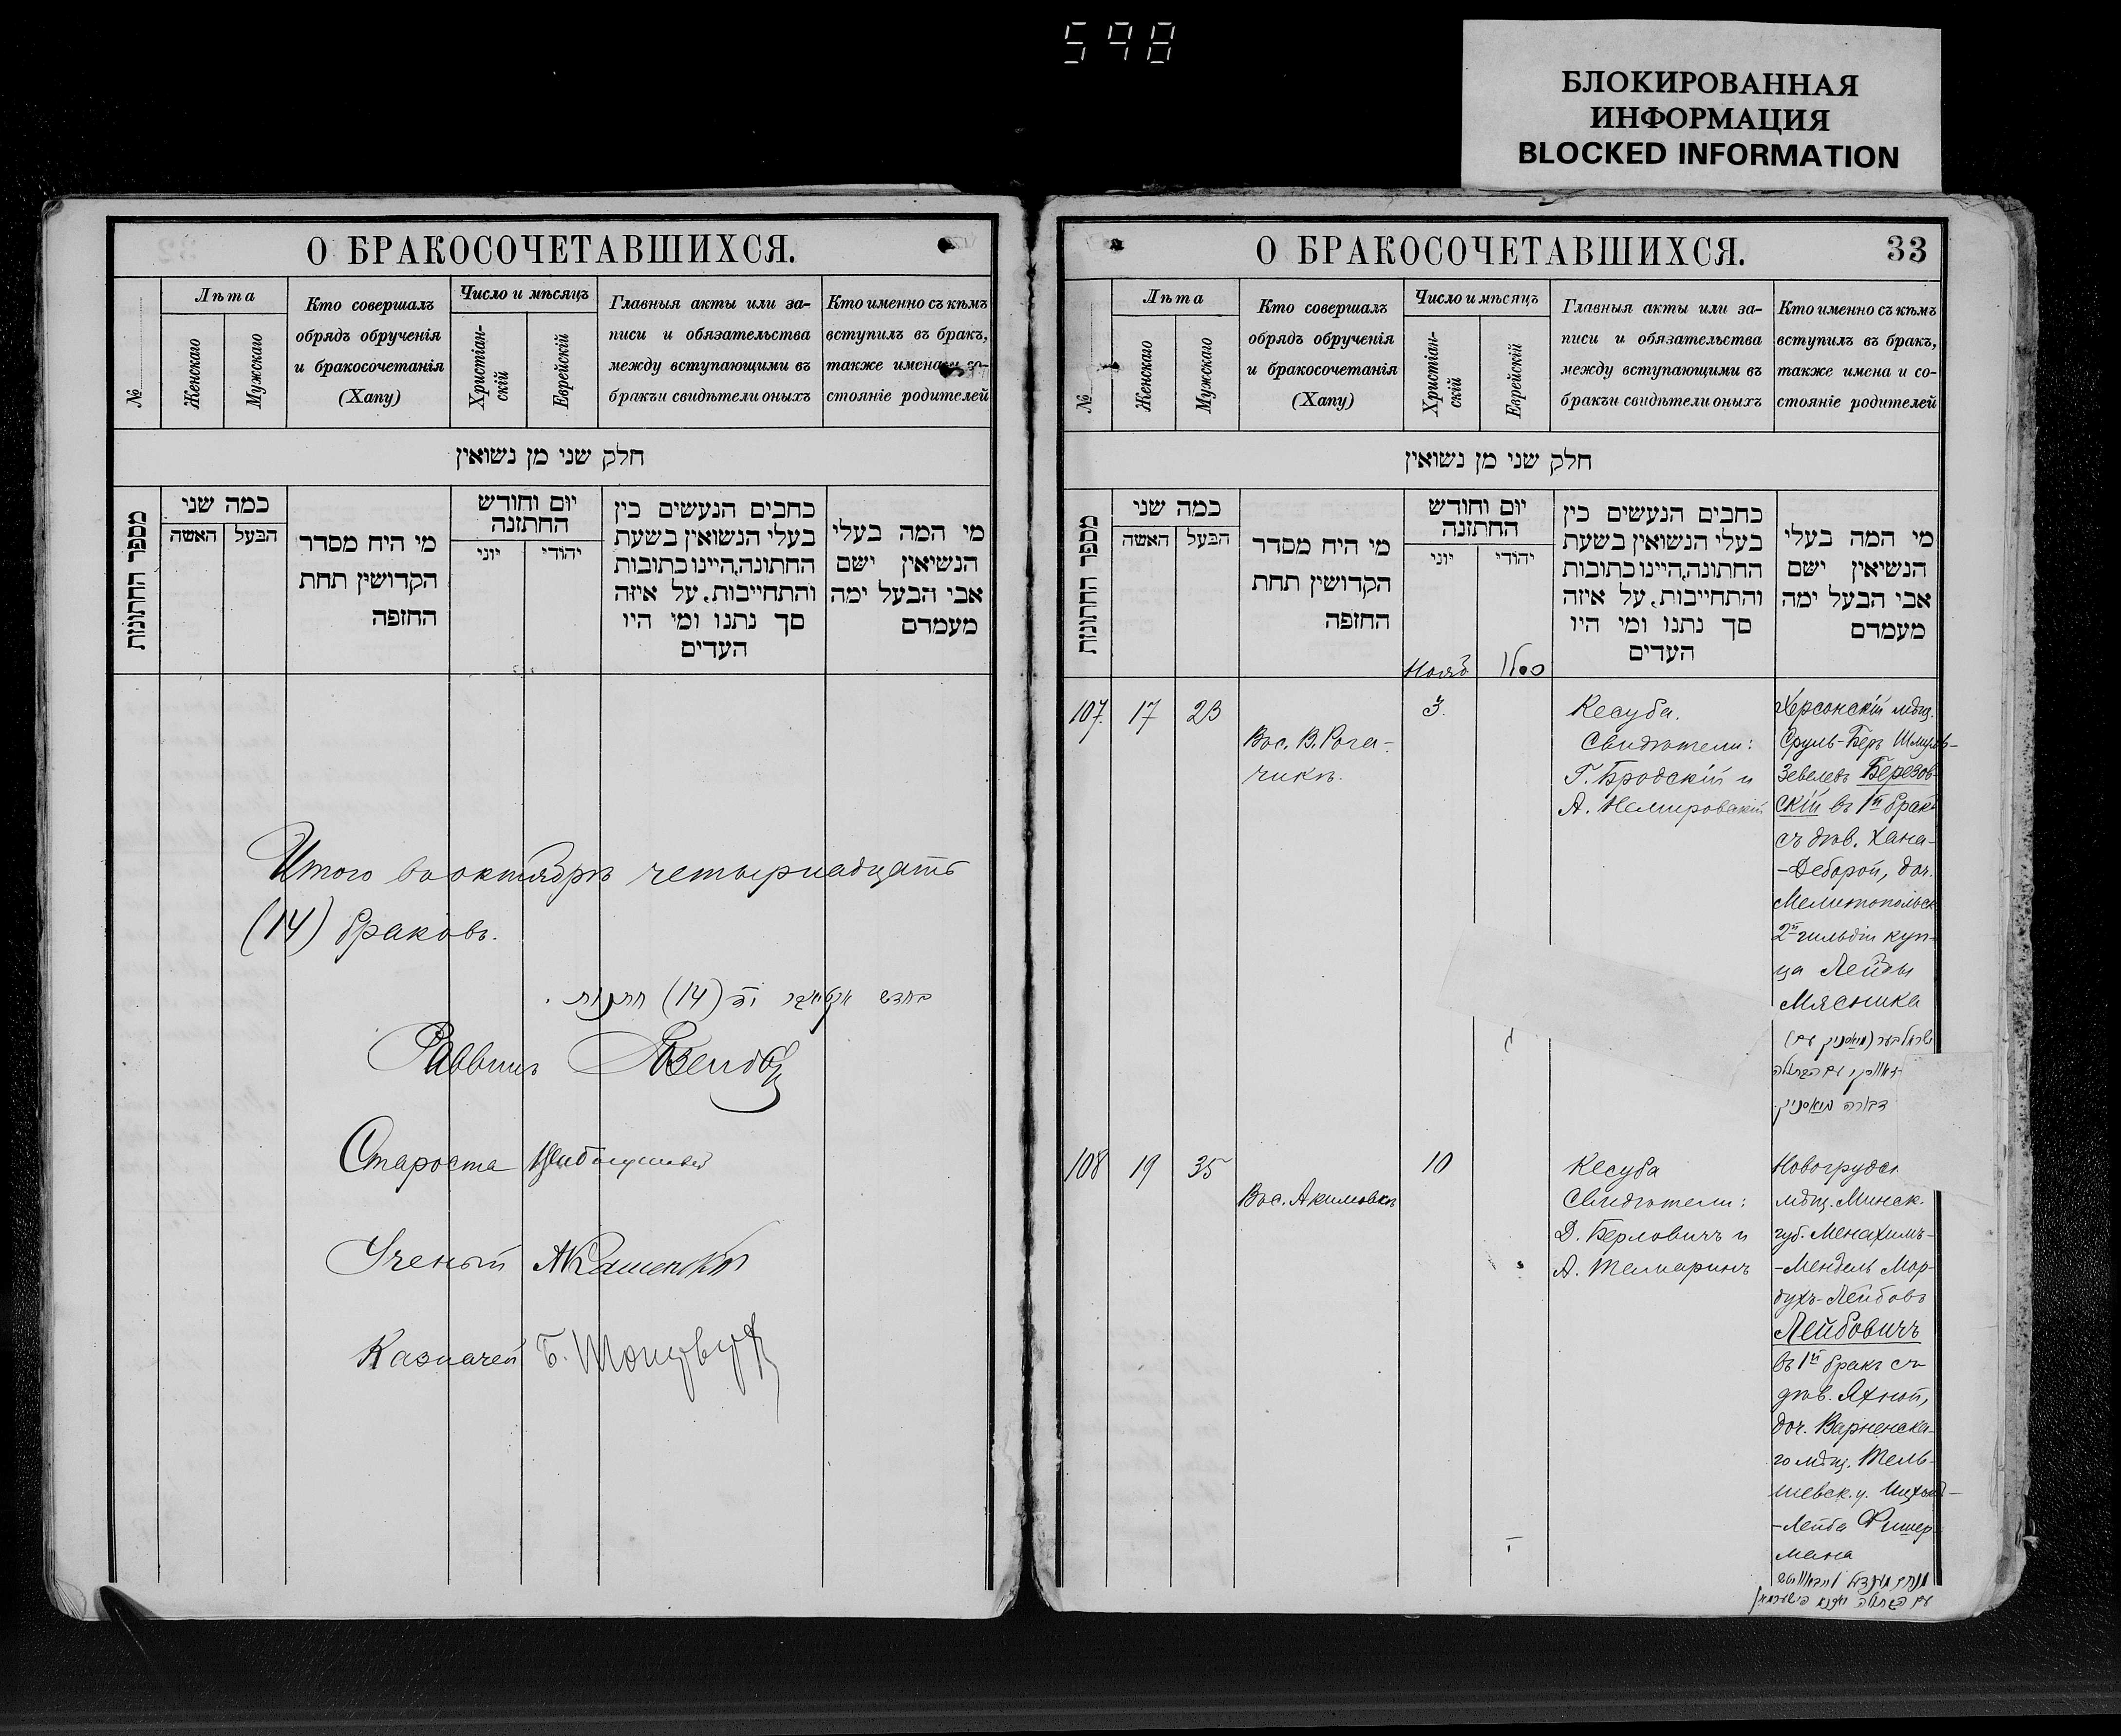 598
БЛОКИРОВАННАЯ
ИНФОРМАЦИЯ
BLOCKED INFORMATION
О БРАКОСОЧЕТАВШИХСЯ.
№
Лѣта
Женскаго
Мужскаго
Кто совершалъ
обрядъ обрученія
и бракосочетанія
(Хапу)
Число и мѣсяцъ
Христіан-
скій
Еврейскій
Главныя акты или за-
писи и обязательства
между вступающими въ
бракъи свидѣтели оныхъ
Кто именно съ кѣмъ
вступилъ въ бракъ,
также имена и со-
стояніе родителей
חלק שני מן נשואין
מספר החתונות
כמה שני
האשה
הבעל
מי היח מסדר
הקדושין תחת
החזפה
יום וחודש
החתזנה
יוני
יהודי
כחבים הנעשים כין
בעלי הנשואין בשעת
החתונה, היינו כתובות
והתחייבות, על איזה
סך נתנו ומי היו
העדים
מי המה בעלי
הנשיאין ישם
אבי הבעל ימה
מעמדם
Итого въ октябрѣ четырнадцать
(14) браковъ.
בחדש אקטיאבר יד (14) חתונות
Раввинъ
Староста
Ученый
Казначей Б.
О БРАКОСОЧЕТАВШИХСЯ.
33
№
Лѣта
Женскаго
Мужскаго
Кто совершалъ
обрядъ обрученія
и бракосочетанія
(Хапу)
Число и мѣсяцъ
Христіан-
скій
Еврейскій
Главныя акты или за-
писи и обязательства
между вступающими въ
бракъи свидѣтели оныхъ
Кто именно съ кѣмъ
вступилъ въ бракъ,
также имена и со-
стояніе родителей
חלק שני מן נשואין
מספר החתונות
כמה שני
האשה
הבעל
מי היח מסדר
הקדושין תחת
החזפה
יום וחודש
החתזנה
יוני
יהודי
כחבים הנעשים כין
בעלי הנשואין בשעת
החתונה, היינו כתובות
והתחייבות, על איזה
סך נתנו ומי היו
העדים
מי המה בעלי
הנשיאין ישם
אבי הבעל ימה
מעמדם
Нояб
כסלו
107.
17
23
Вос. В. Рога-
чикъ.
3.
Кесуба.
Свидѣтели:
Г. Бродскій и
А. Немировскій
Херсонскій мѣщ.
Сруль-Беръ Шмулъ-
Зевелевъ Березов-
скій въ 1й бракъ
съ дѣв. Хана-
-Деборой, доч.
Мелитопольск.
2й гильдіи куп-
ца Лейбы
Мясника
דבורה מיאסניק
108
19
35
Вос. Акимовкѣ
10
Кесуба
Свидѣтели:
Д. Берловичъ и
А. Темаринъ
Новогрудск
мѣщ. Минск.
губ. Менахимъ-
-Мендель Мор-
духъ-Лейбовъ
Лейбовичъ
въ 1й бракъ съ
дѣв. Яхной,
доч. Варненска-
го мѣщ. Тель-
шевск. у.
-Лейба Фишер-
мана